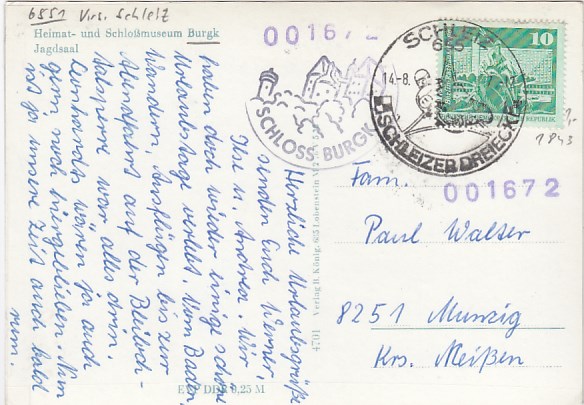 6551 Krs. Schleiz
Heimat- und Schloßmuseum Burgk
Jagdsaal
001672
SCHLEIZ
655
14-8.
SCHLEIZER DREIECK
SCHLOSS BURGK
10
REPUBLIK
1843
Herzliche Urlaubsgrüße
senden Euch Werner,
Ilse u. Andrea. Wir
haben doch wieder einige schöne
Urlaubstage verlebt. Vom Baden,
Wandern, Ausflügen bis zur
Abendfahrt auf der Bleiloch-
talsperre war alles drin.
Leonhardts wären ja auch
gern noch hiergeblieben. Nun
ist ja unsere Zeit auch bald
rum.
EVP DDR 0,25 M
4701 Verlag B. König, 685 Lobenstein
001672
Fam.
Paul Walter
8251 Munzig
Krs. Meißen